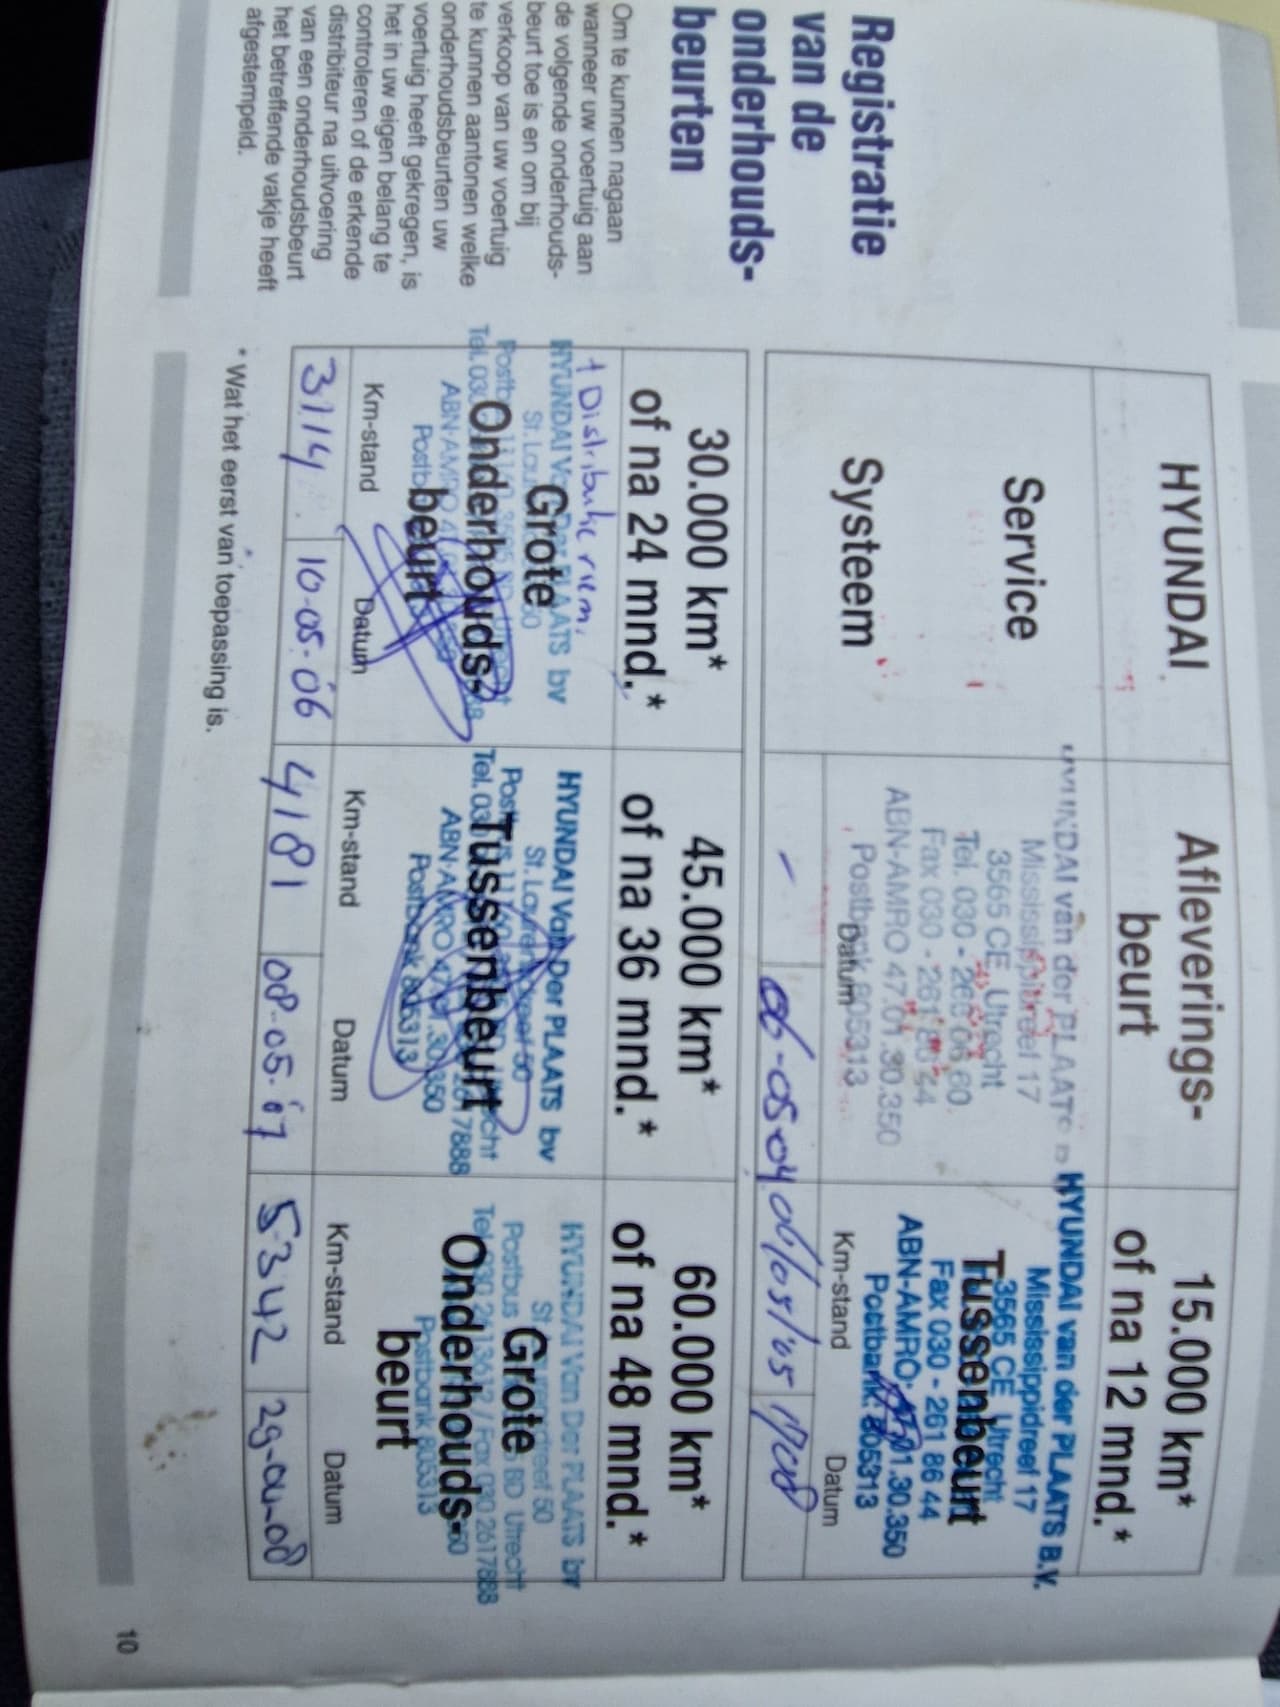 Registratie
van de
onderhouds-
beurten
Om te kunnen nagaan
wanneer uw voertuig aan
de volgende onderhouds-
beurt toe is en om bij
verkoop van uw voertuig
te kunnen aantonen welke
onderhoudsbeurten uw
voertuig heeft gekregen, is
het in uw eigen belang te
controleren of de erkende
distributeur na uitvoering
van een onderhoudsbeurt
het betreffende vakje heeft
afgestempeld.
HYUNDAI
Service
Systeem
Afleverings-
beurt
HYUNDAI van der PLAATS
Mississippidreef 17
3565 CE Utrecht
Tel. 030 -
Fax 030 - 261 86 44
ABN-AMRO 47.01.30.350
Postbank 805313
Datum
06-05-04
15.000 km*
of na 12 mnd.*
HYUNDAI van der PLAATS B.V.
Mississippidreef 17
3565 CE Utrecht
Tussenbeurt
Fax 030 - 261 86 44
ABN-AMRO: 47.01.30.350
Postbank: 805313
Km-stand
Datum
06/05/'05
30.000 km*
of na 24 mnd.*
+ Distributie riem,
HYUNDAI Van Der PLAATS bv
Grote
Onderhouds-
beurt
Km-stand
Datum
3114
10-05-'06
45.000 km*
of na 36 mnd.*
HYUNDAI Van Der PLAATS bv
St. Laurensdreef 50
Tussenbeurt
ABN-AMRO 47.01.30.350
Postbank 805313
Km-stand
Datum
4181
08-05-'07
60.000 km*
of na 48 mnd.*
HYUNDAI Van Der PLAATS bv
Grote
Postbus BD Utrecht
Tel. 030 2613672 / Fax 030 2617888
Onderhouds-
Postbank 805313
beurt
Km-stand
Datum
5342
29-04-08
* Wat het eerst van toepassing is.
10